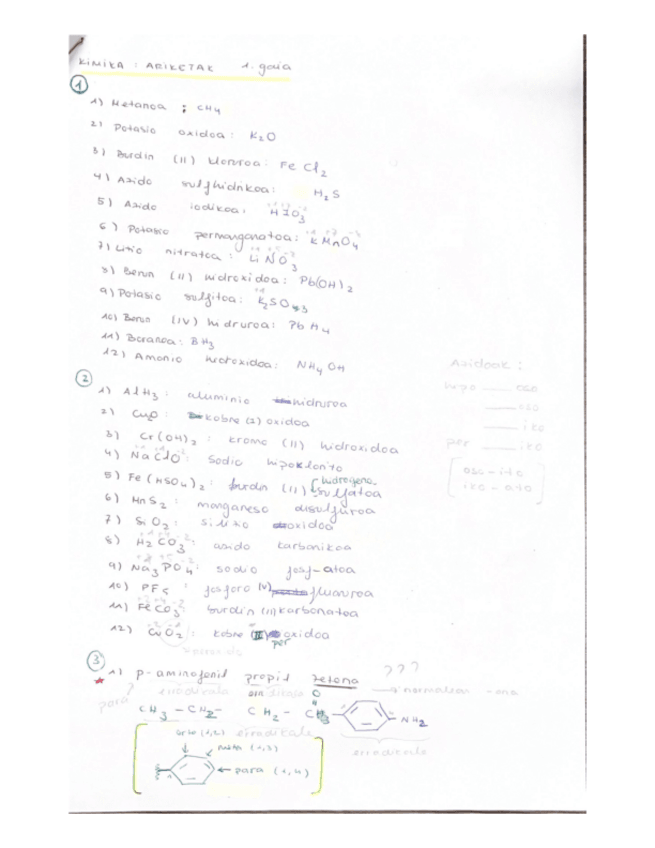 KIMIKA : ARIKETAK 1. gaia
1
1) Metanoa : CH4
2) Potasio oxidoa : K2O
3) Burdin (II) kloruroa : FeCl2
4) Azido sulfhidrikoa : H2S
5) Azido iodikoa : HIO3
6) Potasio permanganatoa : KMnO4
7) Litio nitratoa : LiNO3
8) Berun (II) hidroxidoa : Pb(OH)2
9) Potasio sulfitoa : K2SO3
10) Berun (IV) hidruroa : PbH4
11) Boranoa : BH3
12) Amonio hidroxidoa : NH4OH
Azidoak :
hipo ___ oso
___ oso
___ iko
per ___ iko
oso - ito
iko - ato
2
1) AlH3 : aluminio hidruroa
2) CuO : kobre (2) oxidoa
3) Cr(OH)2 : kromo (II) hidroxidoa
4) NaClO : Sodio hipoklorito
5) Fe(HSO4)2 : burdin (II) hidrogeno sulfatoa
6) MnS2 : manganeso disulfuroa
7) SiO2 : silizio oxidoa
8) H2CO3 : azido karbonikoa
9) Na3PO4 : sodio fosf-atoa
10) PF5 : fosforo (V) fluoruroa
11) FeCO3 : burdin (II) karbonatoa
12) CuO2 : kobre (II) peroxidoa
peroxido
3
1) p-aminofenil propil zetona ???
para? erradikala erradikala normalean -ona
CH3 - CH2 - CH2 - C O NH2
orto (1,2) erradikala erradikala
meta (1,3)
para (1,4)